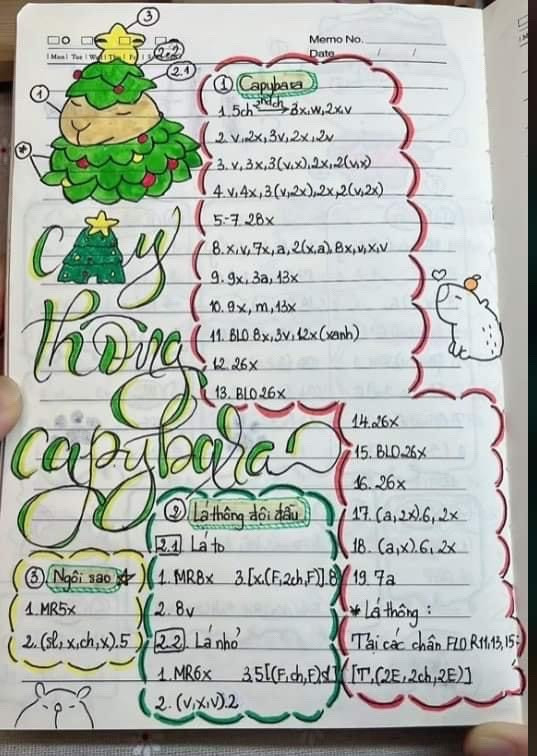 Memo No.
Date / /
Mon Tue We Th Fr S
3
2.2
2.1
1
*
Cây
thông
capybara
① Capybara
1. 5ch 2nd ch → 3x,w,2x,v
2. v,2x,3v,2x,2v
3. v,3x,3(v,x),2x,2(v,x)
4. v,4x,3(v,2x),2x,2(v,2x)
5-7. 28x
8. x,v,7x,a,2(x,a),8x,v,x,v
9. 9x,3a,13x
10. 9x,m,13x
11. BLO 8x,3v,12x(xanh)
12. 26x
13. BLO 26x
14. 26x
15. BLO 26x
16. 26x
17. (a,2x).6,2x
18. (a,x).6,2x
19. 7a
* Lá thông :
Tại các chân FLO R11,13,15:
[T,(2E,2ch,2E)]
② Lá thông đội đầu
2.1 Lá to
1. MR8x 3.[x,(F,2ch,F)].8
2. 8v
2.2 Lá nhỏ
1. MR6x 3.5[(F,ch,F)sl]
2. (v,x,v).2
③ Ngôi sao
1. MR5x
2. (sl,x,ch,x).5